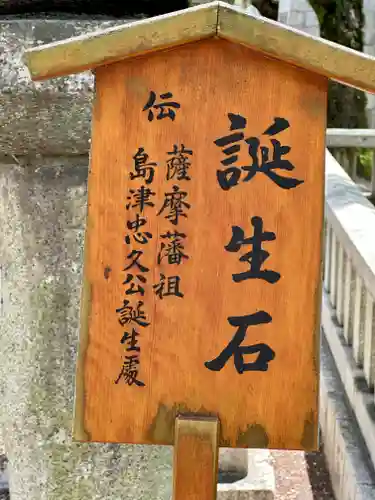 誕生石
薩摩藩祖
伝
島津忠久公誕生處